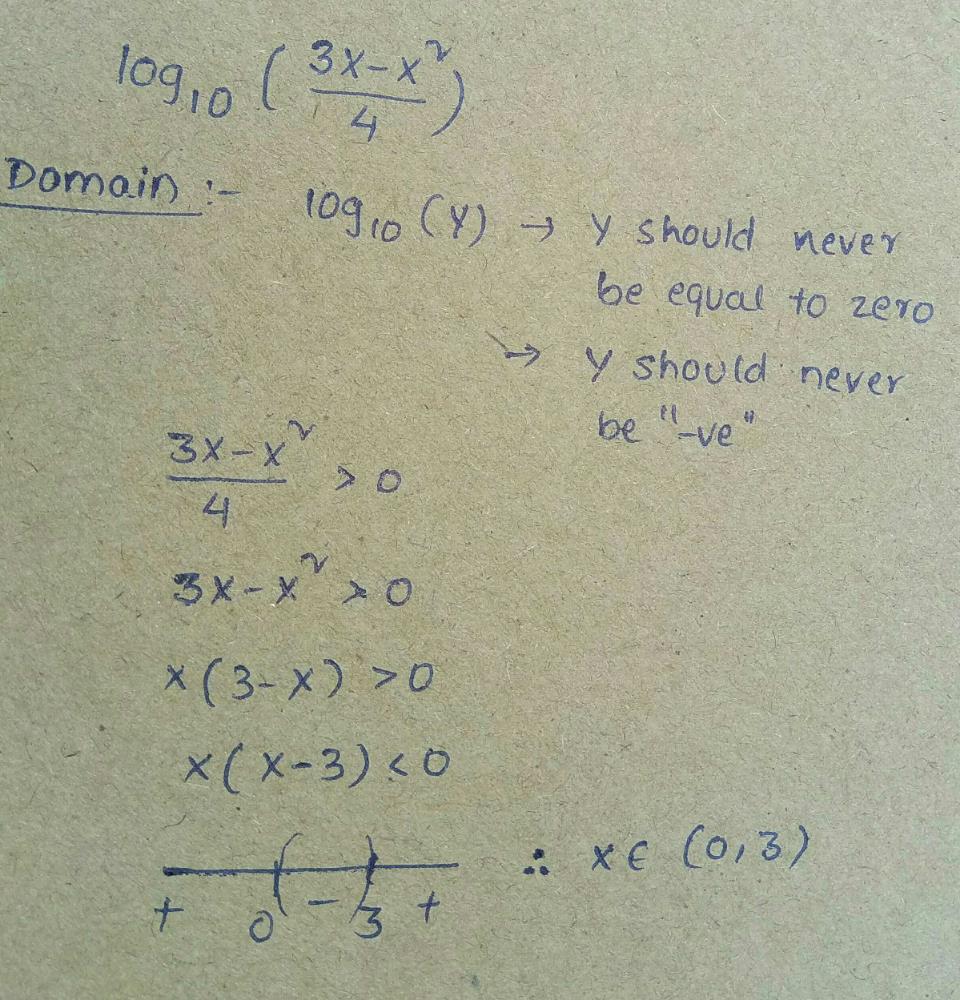 log₁₀ ( (3x-x²)/4 )
Domain :- log₁₀ (Y) → Y should never
be equal to zero
→ Y should never
be "-ve"
(3x-x²)/4 > 0
3x-x² > 0
x(3-x) > 0
x(x-3) < 0
+ 0 ( - ) 3 + ∴ x ∈ (0,3)